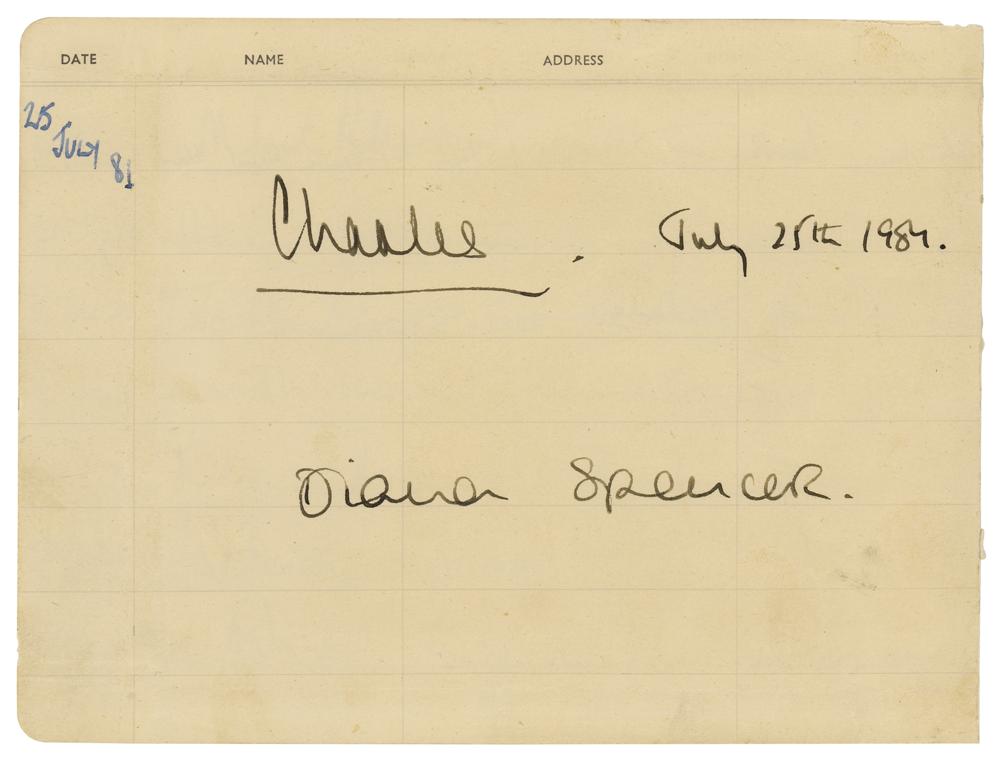 DATE NAME ADDRESS
25
JULY
81
Charles. July 25th 1981.
Diana Spencer.